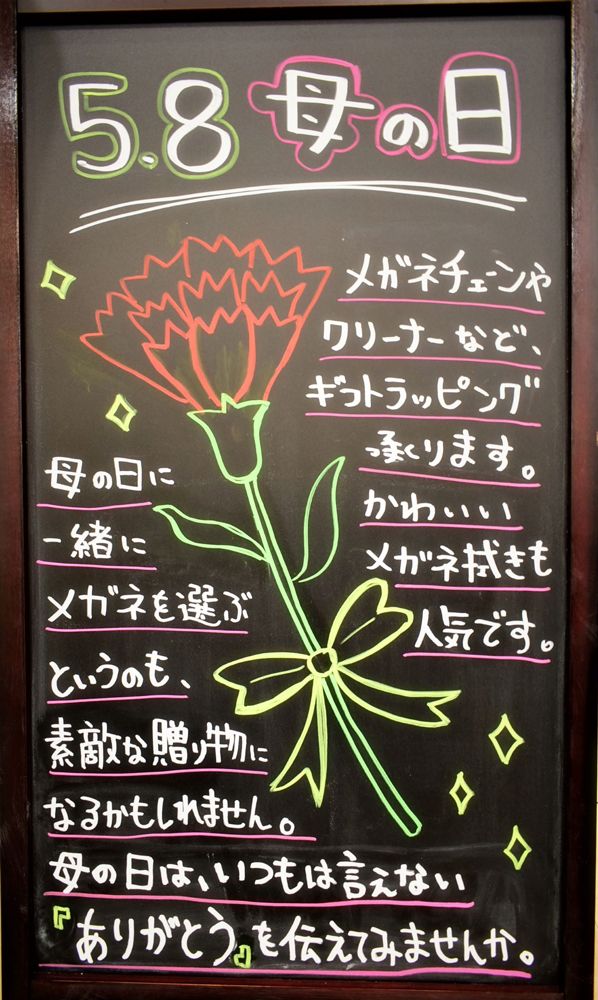 5.8 母の日
メガネチェーンや
クリーナーなど、
ギフトラッピング
承ります。
かわいい
メガネ拭きも
人気です。
母の日に
一緒に
メガネを選ぶ
というのも、
素敵な贈り物に
なるかもしれません。
母の日は、いつもは言えない
『ありがとう』を伝えてみませんか。